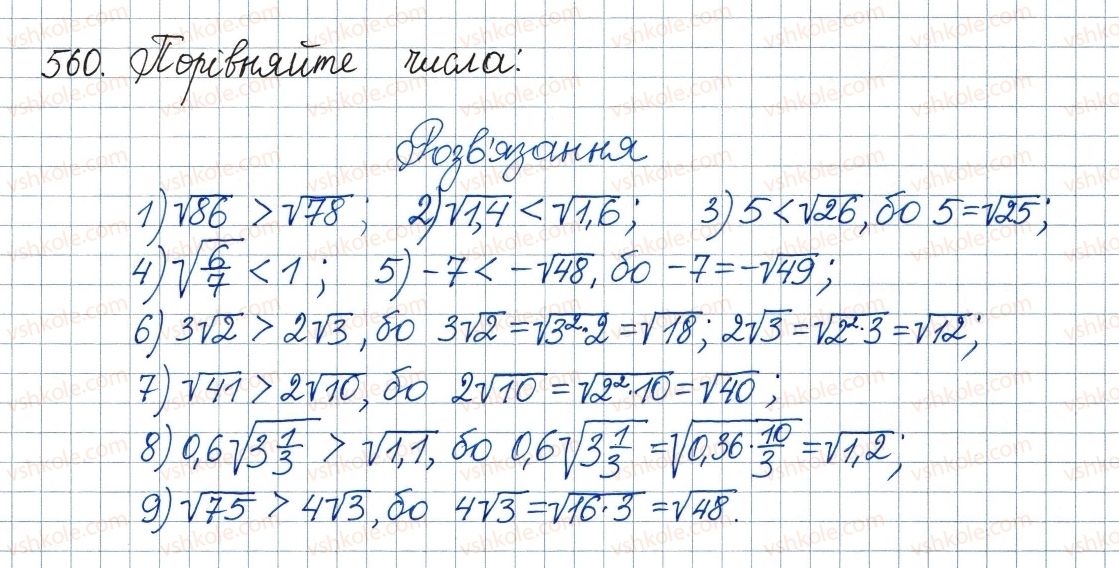 560. Порівняйте числа:
Розв'язання
1) √86 > √78; 2) √1,4 < √1,6; 3) 5 < √26, бо 5 = √25;
4) √(6/7) < 1; 5) -7 < -√48, бо -7 = -√49;
6) 3√2 > 2√3, бо 3√2 = √(3²·2) = √18; 2√3 = √(2²·3) = √12;
7) √41 > 2√10, бо 2√10 = √(2²·10) = √40;
8) 0,6√(3 1/3) > √1,1, бо 0,6√(3 1/3) = √(0,36·10/3) = √1,2;
9) √75 > 4√3, бо 4√3 = √(16·3) = √48.